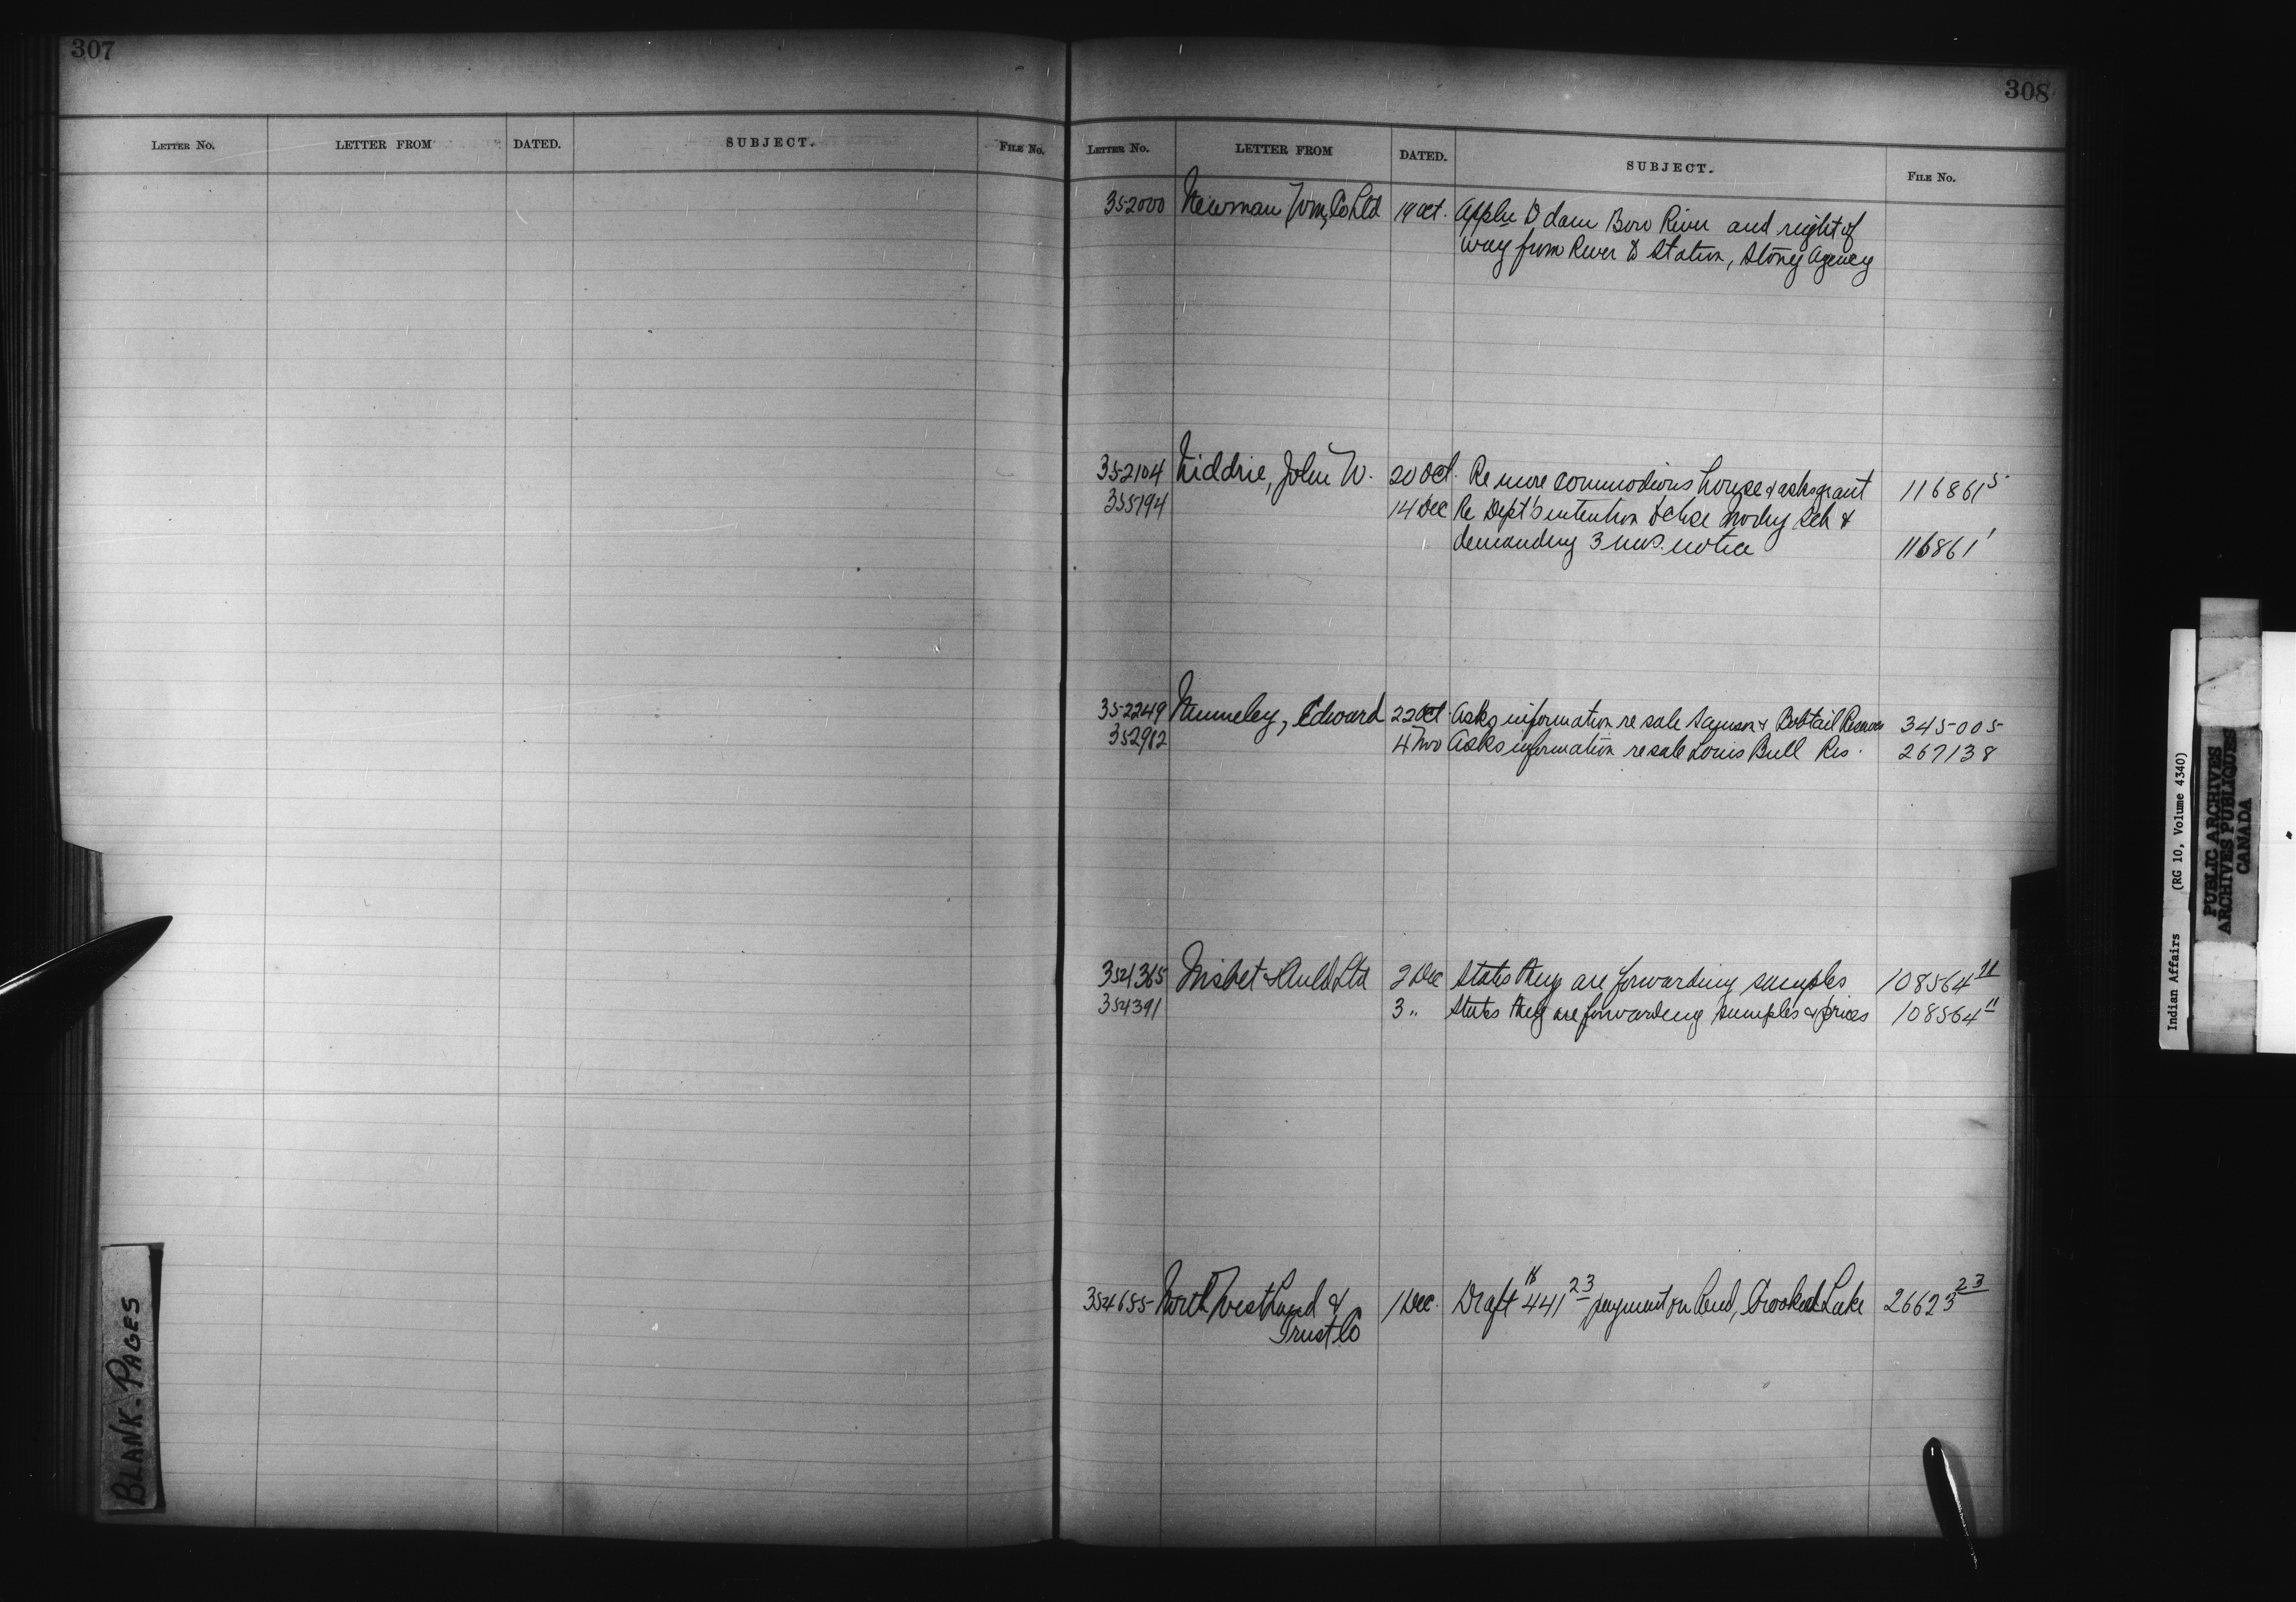 307
LETTER NO. LETTER FROM DATED. SUBJECT. FILE No.
BLANK-PAGES
308
LETTER NO. LETTER FROM DATED. SUBJECT. FILE No.
352000 Newman, Wm, Co Ltd 19 Oct. Appln to dam Bow River and right of
way from River to Station, Stony Agency
352104 Niddrie, John W. 20 Oct. Re more commodious house & asks grant 116861 5
355194 14 Dec Re Dept's intention to close Morley Sch &
demanding 3 mos. notice 116861 1
352249 Nunneley, Edward 22 Oct. Asks information re sale Samson & Bobtail Reserves 345005
352912 4 Nov Asks information re sale Louis Bull Res. 267138
354365 Nisbet & Auld Ltd 2 Dec States they are forwarding samples 108564
354391 3 " States they are forwarding samples & prices 108564 11
354655 North West Land & 1 Dec. Draft 441 23 payment on Land, Crooked Lake 26623 23
Trust Co
Indian Affairs (RG 10, Volume 4340)
PUBLIC ARCHIVES
ARCHIVES PUBLIQUES
CANADA